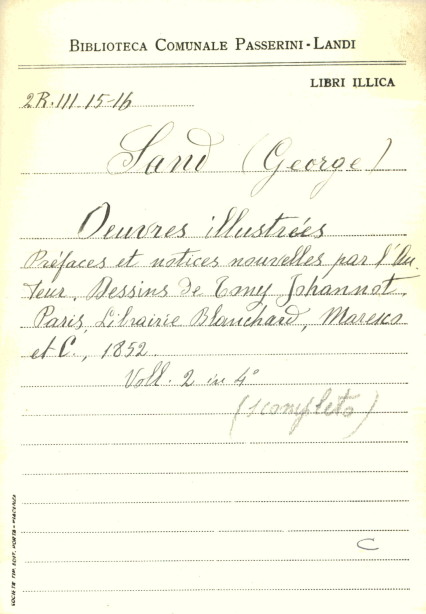 BIBLIOTECA COMUNALE PASSERINI-LANDI
LIBRI ILLICA
2R.III 15-16
Sand (George)
Oeuvres illustrées
Préfaces et notices nouvelles par l'Au-
teur. Dessins de Tony Johannot.
Paris, Librairie Blanchard, Maresco
et C., 1852
Voll. 2 in 4°
(scompleto)
C